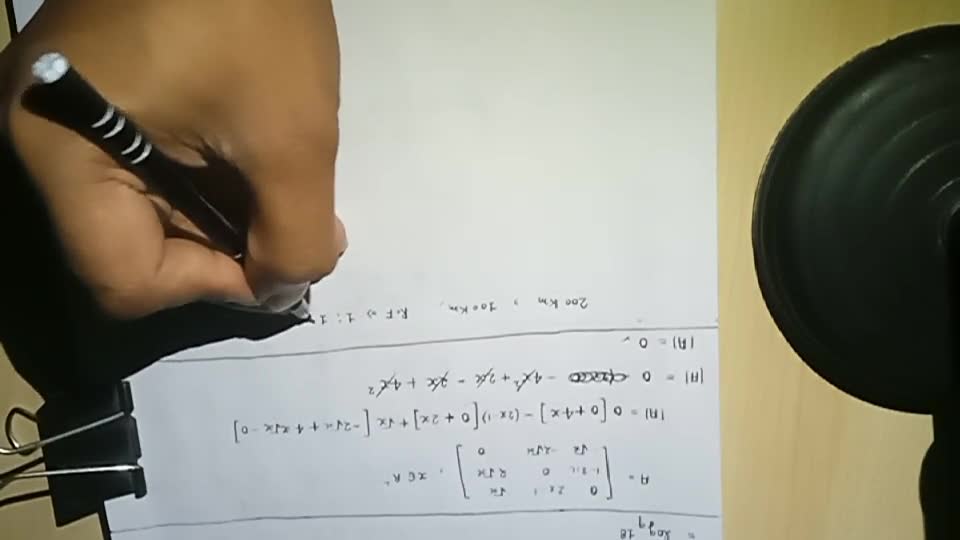 = log₉ 18
A = [ 0 2x-1 √x
1-2x 0 2√x
√x -2√x 0 ] , x∈R⁺
|A| = 0 [0+4x] - (2x-1) [0+2x] + √x [-2√x + 4x√x - 0]
|A| = 0 - 4x² + 2x - 2x + 4x²
|A| = 0
200 km , 100 km , R.F ⇒ 1 : 1